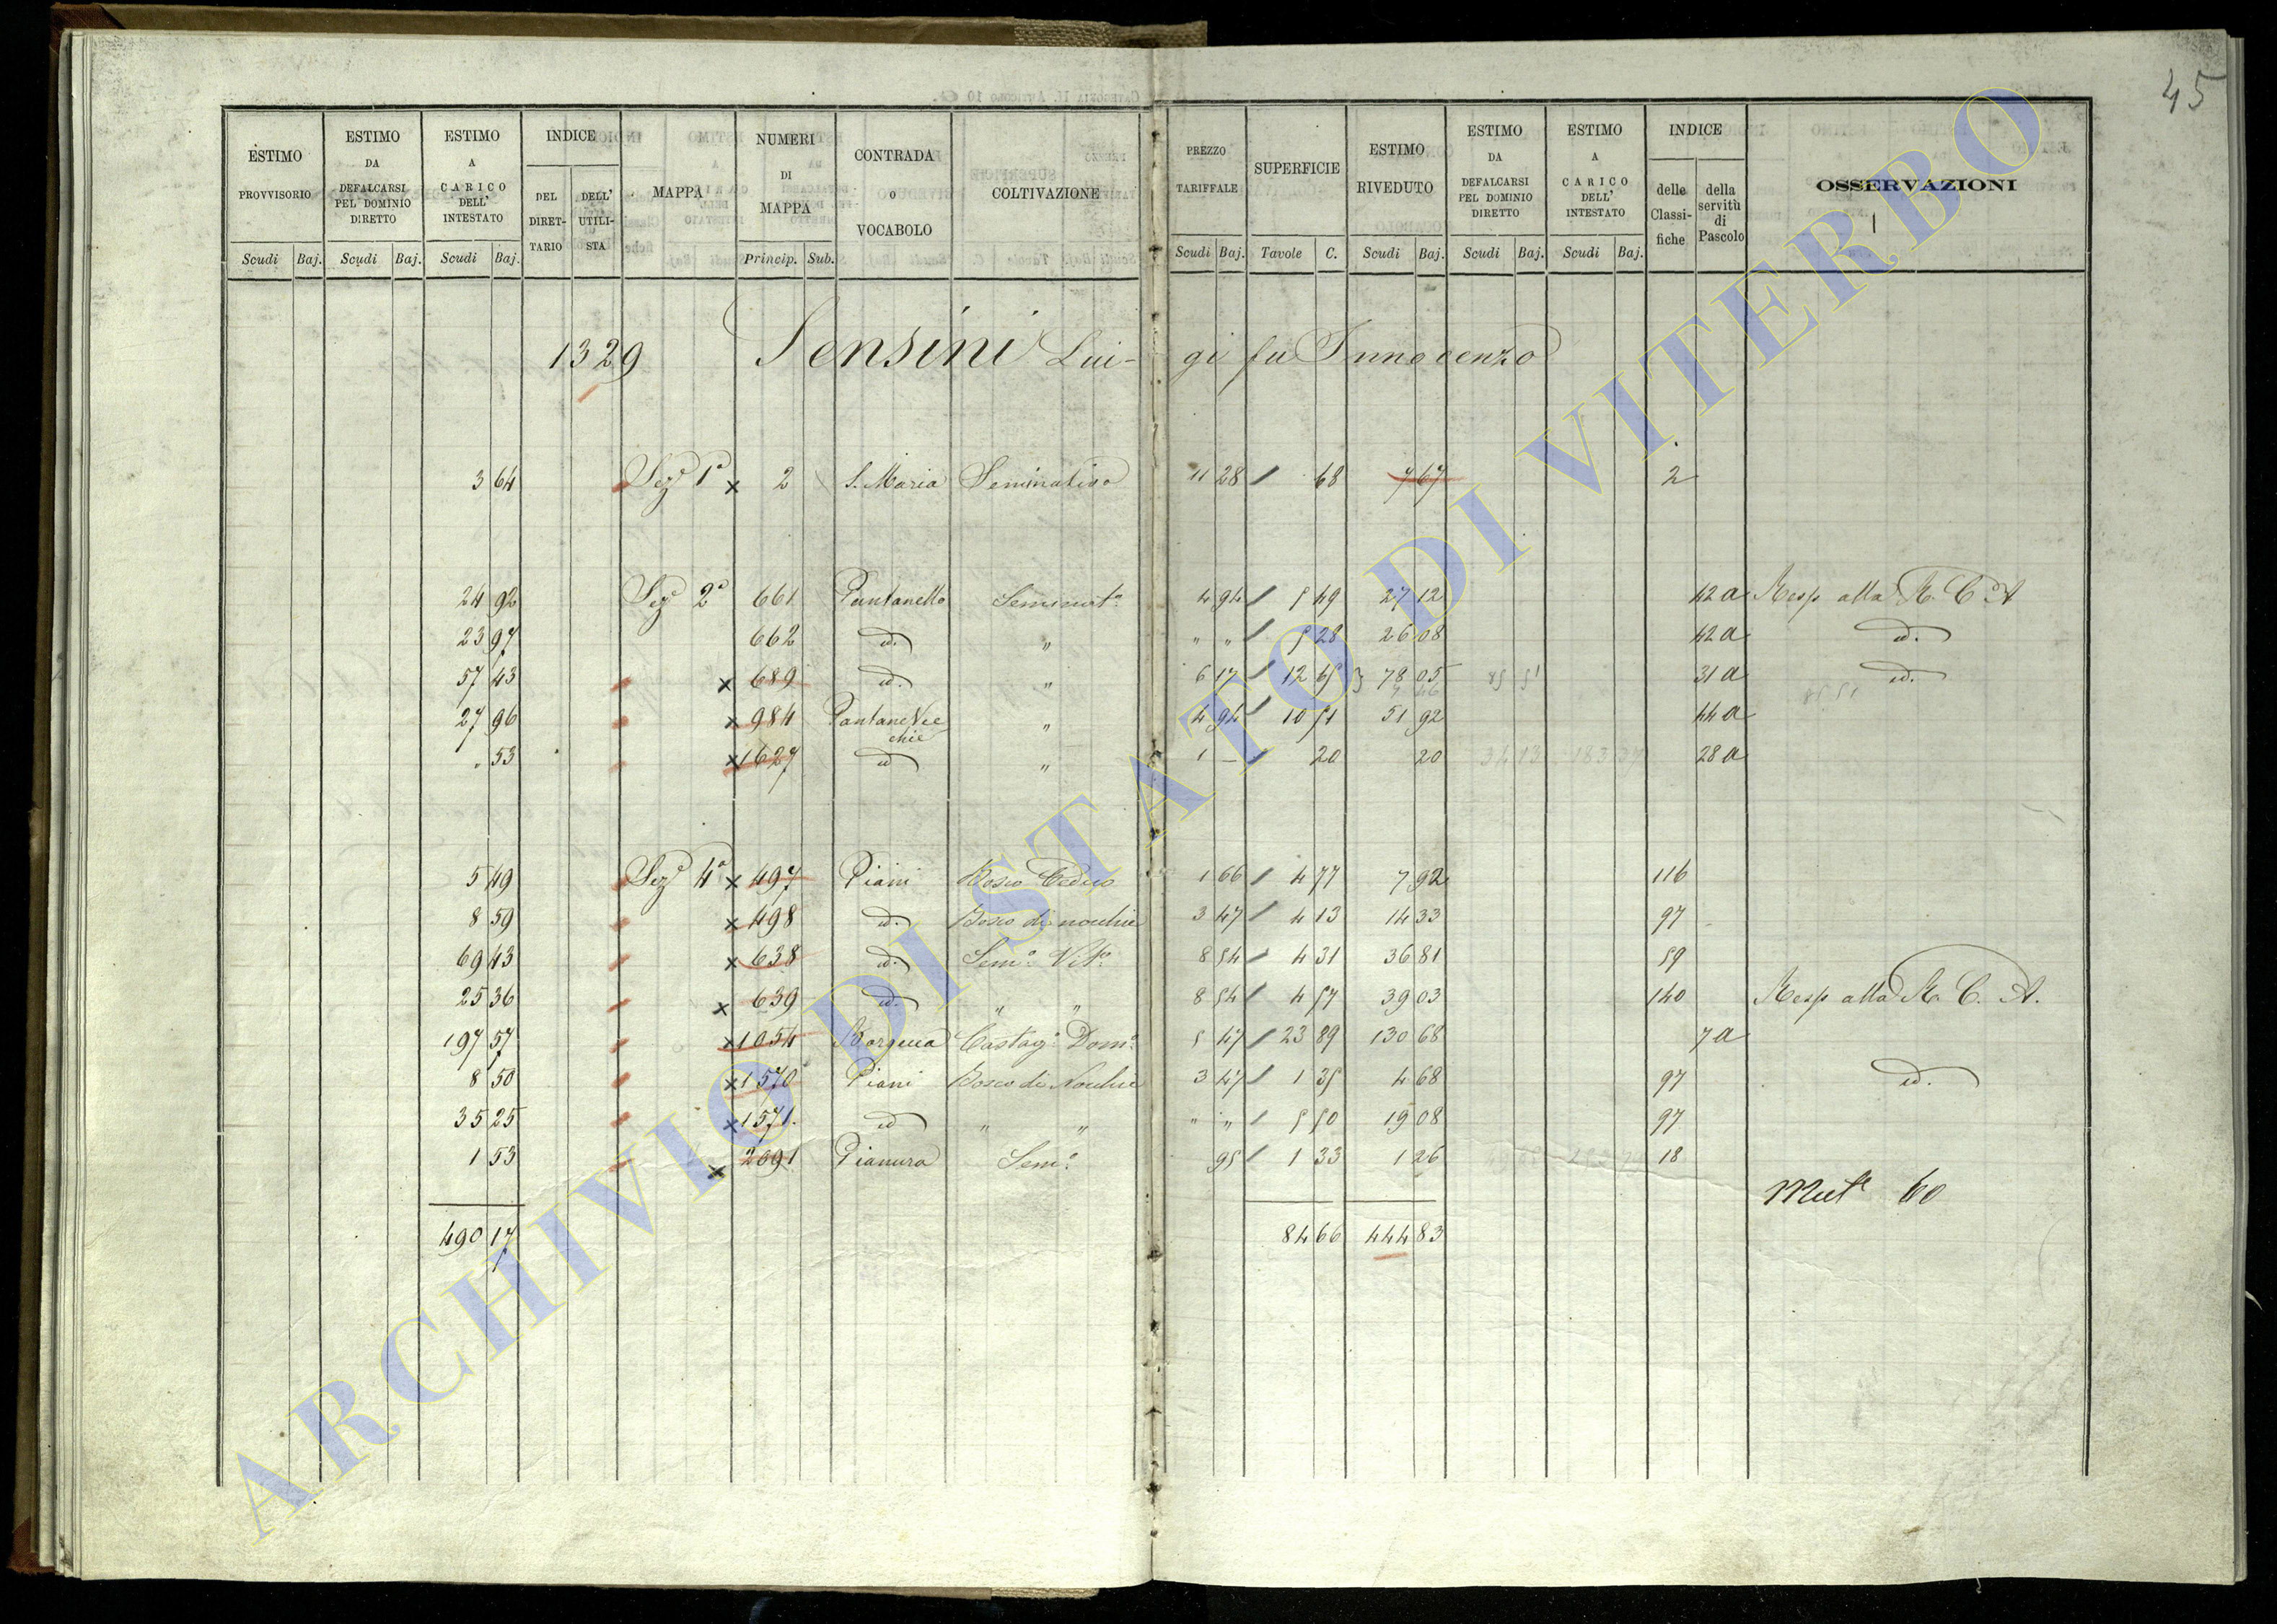 45
ESTIMO PROVVISORIO Scudi Baj.
ESTIMO DA DEFALCARSI PEL DOMINIO DIRETTO Scudi Baj.
ESTIMO A CARICO DELL' INTESTATO Scudi Baj.
INDICE DEL DIRETTARIO DELL' UTILISTA
MAPPA
NUMERI DI MAPPA Princip. Sub.
CONTRADA O VOCABOLO
COLTIVAZIONE
PREZZO TARIFFALE Scudi Baj.
SUPERFICIE Tavole C.
ESTIMO RIVEDUTO Scudi Baj.
ESTIMO DA DEFALCARSI PEL DOMINIO DIRETTO Scudi Baj.
ESTIMO A CARICO DELL' INTESTATO Scudi Baj.
INDICE delle Classifiche della servitù di Pascolo
OSSERVAZIONI
1329 Sensini Lui- gi fu Innocenzo
3 64 Sez. 1a x 2 S. Maria Seminativo 11 28 / 68 7 67 2
24 92 Sez. 2a 661 Pantanello Seminato 4 94 / 5 49 27 12 42 a Resp alla R. C. A
23 97 662 id. " " " / 5 28 26 08 42 a id.
57 43 x 689 id. " 6 17 / 12 65 78 05 85 51 31 a id.
27 96 x 984 Pantane Vecchie " 4 94 / 10 51 51 92 44 a
" 53 x 1627 id " 1 — / 20 20 28 a
5 49 Sez. 4a x 497 Piani Bosco Ceduo 1 66 / 4 77 7 92 116
8 59 x 498 id. Bosco di nocchie 3 47 / 4 13 14 33 97
69 43 x 638 id. Sem. Vit. 8 54 / 4 31 36 81 59
25 36 x 639 id. " " 8 54 / 4 57 39 03 140 Resp alla R. C. A.
197 57 x 1054 Castag. Dom. 5 47 / 23 89 130 68 7 a
8 50 x 1570 Piani Bosco di Nocchie 3 47 / 1 35 4 68 97 id.
35 25 x 1571. id " " " " / 5 50 19 08 97
1 53 x 2091 Pianura Sem. 95 / 1 33 1 26 18
Mut. 60
490 17 84 66 444 83
ARCHIVIO DI STATO DI VITERBO